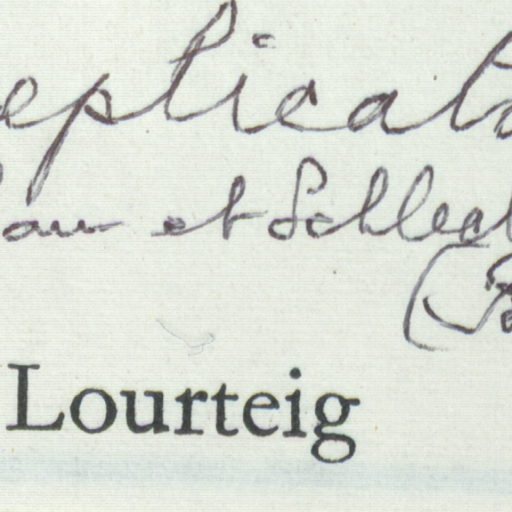 eplicat
au et Schlecht
Lourteig